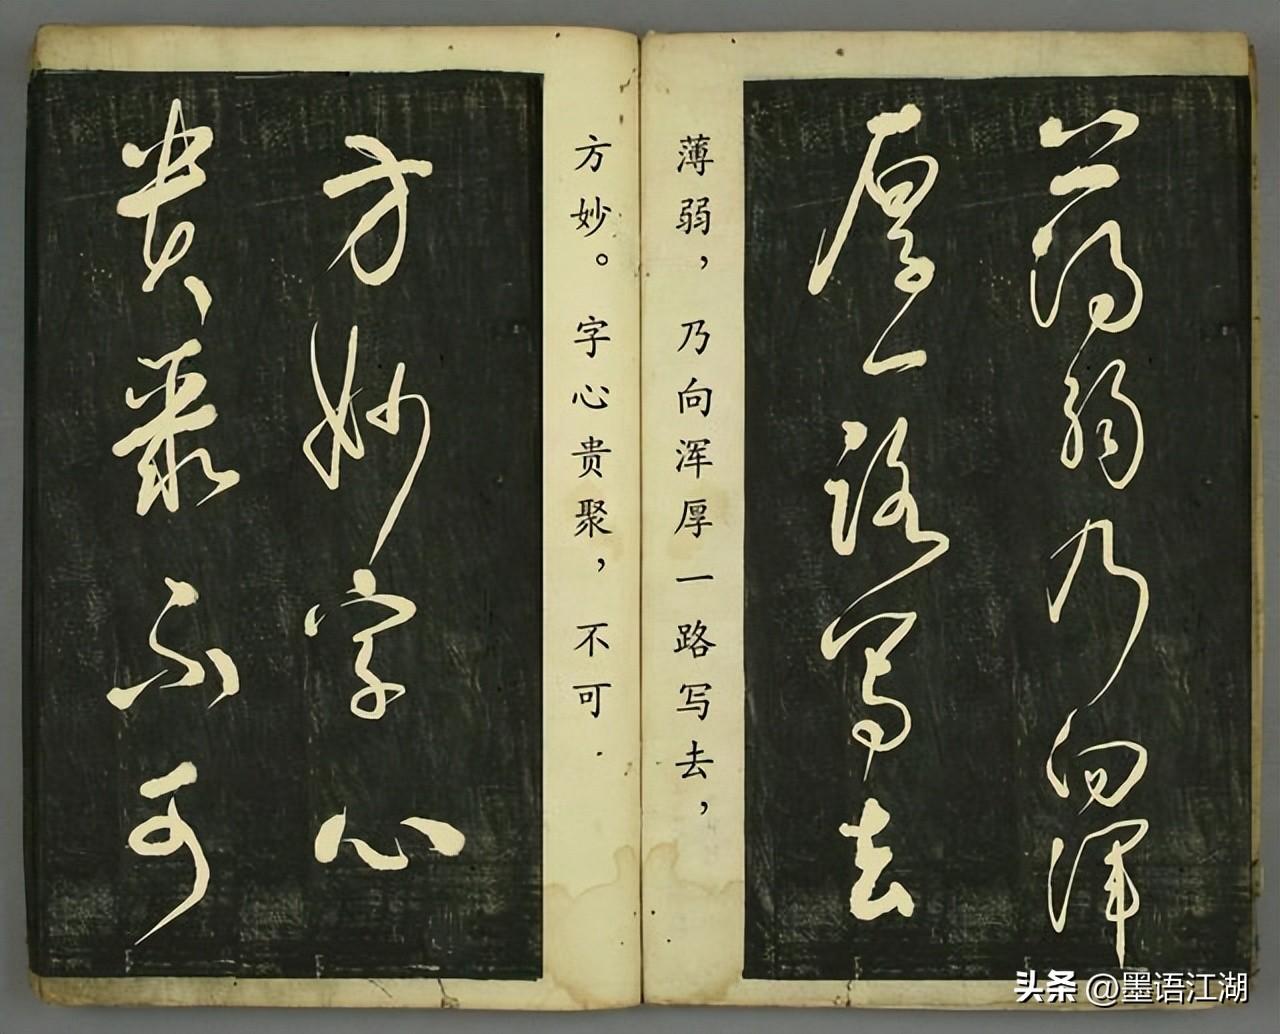 薄弱乃向浑
厚一路写去
薄弱，乃向浑厚一路写去，
方妙。字心贵聚，不可.
方妙字心
贵聚不可
头条 @墨语江湖